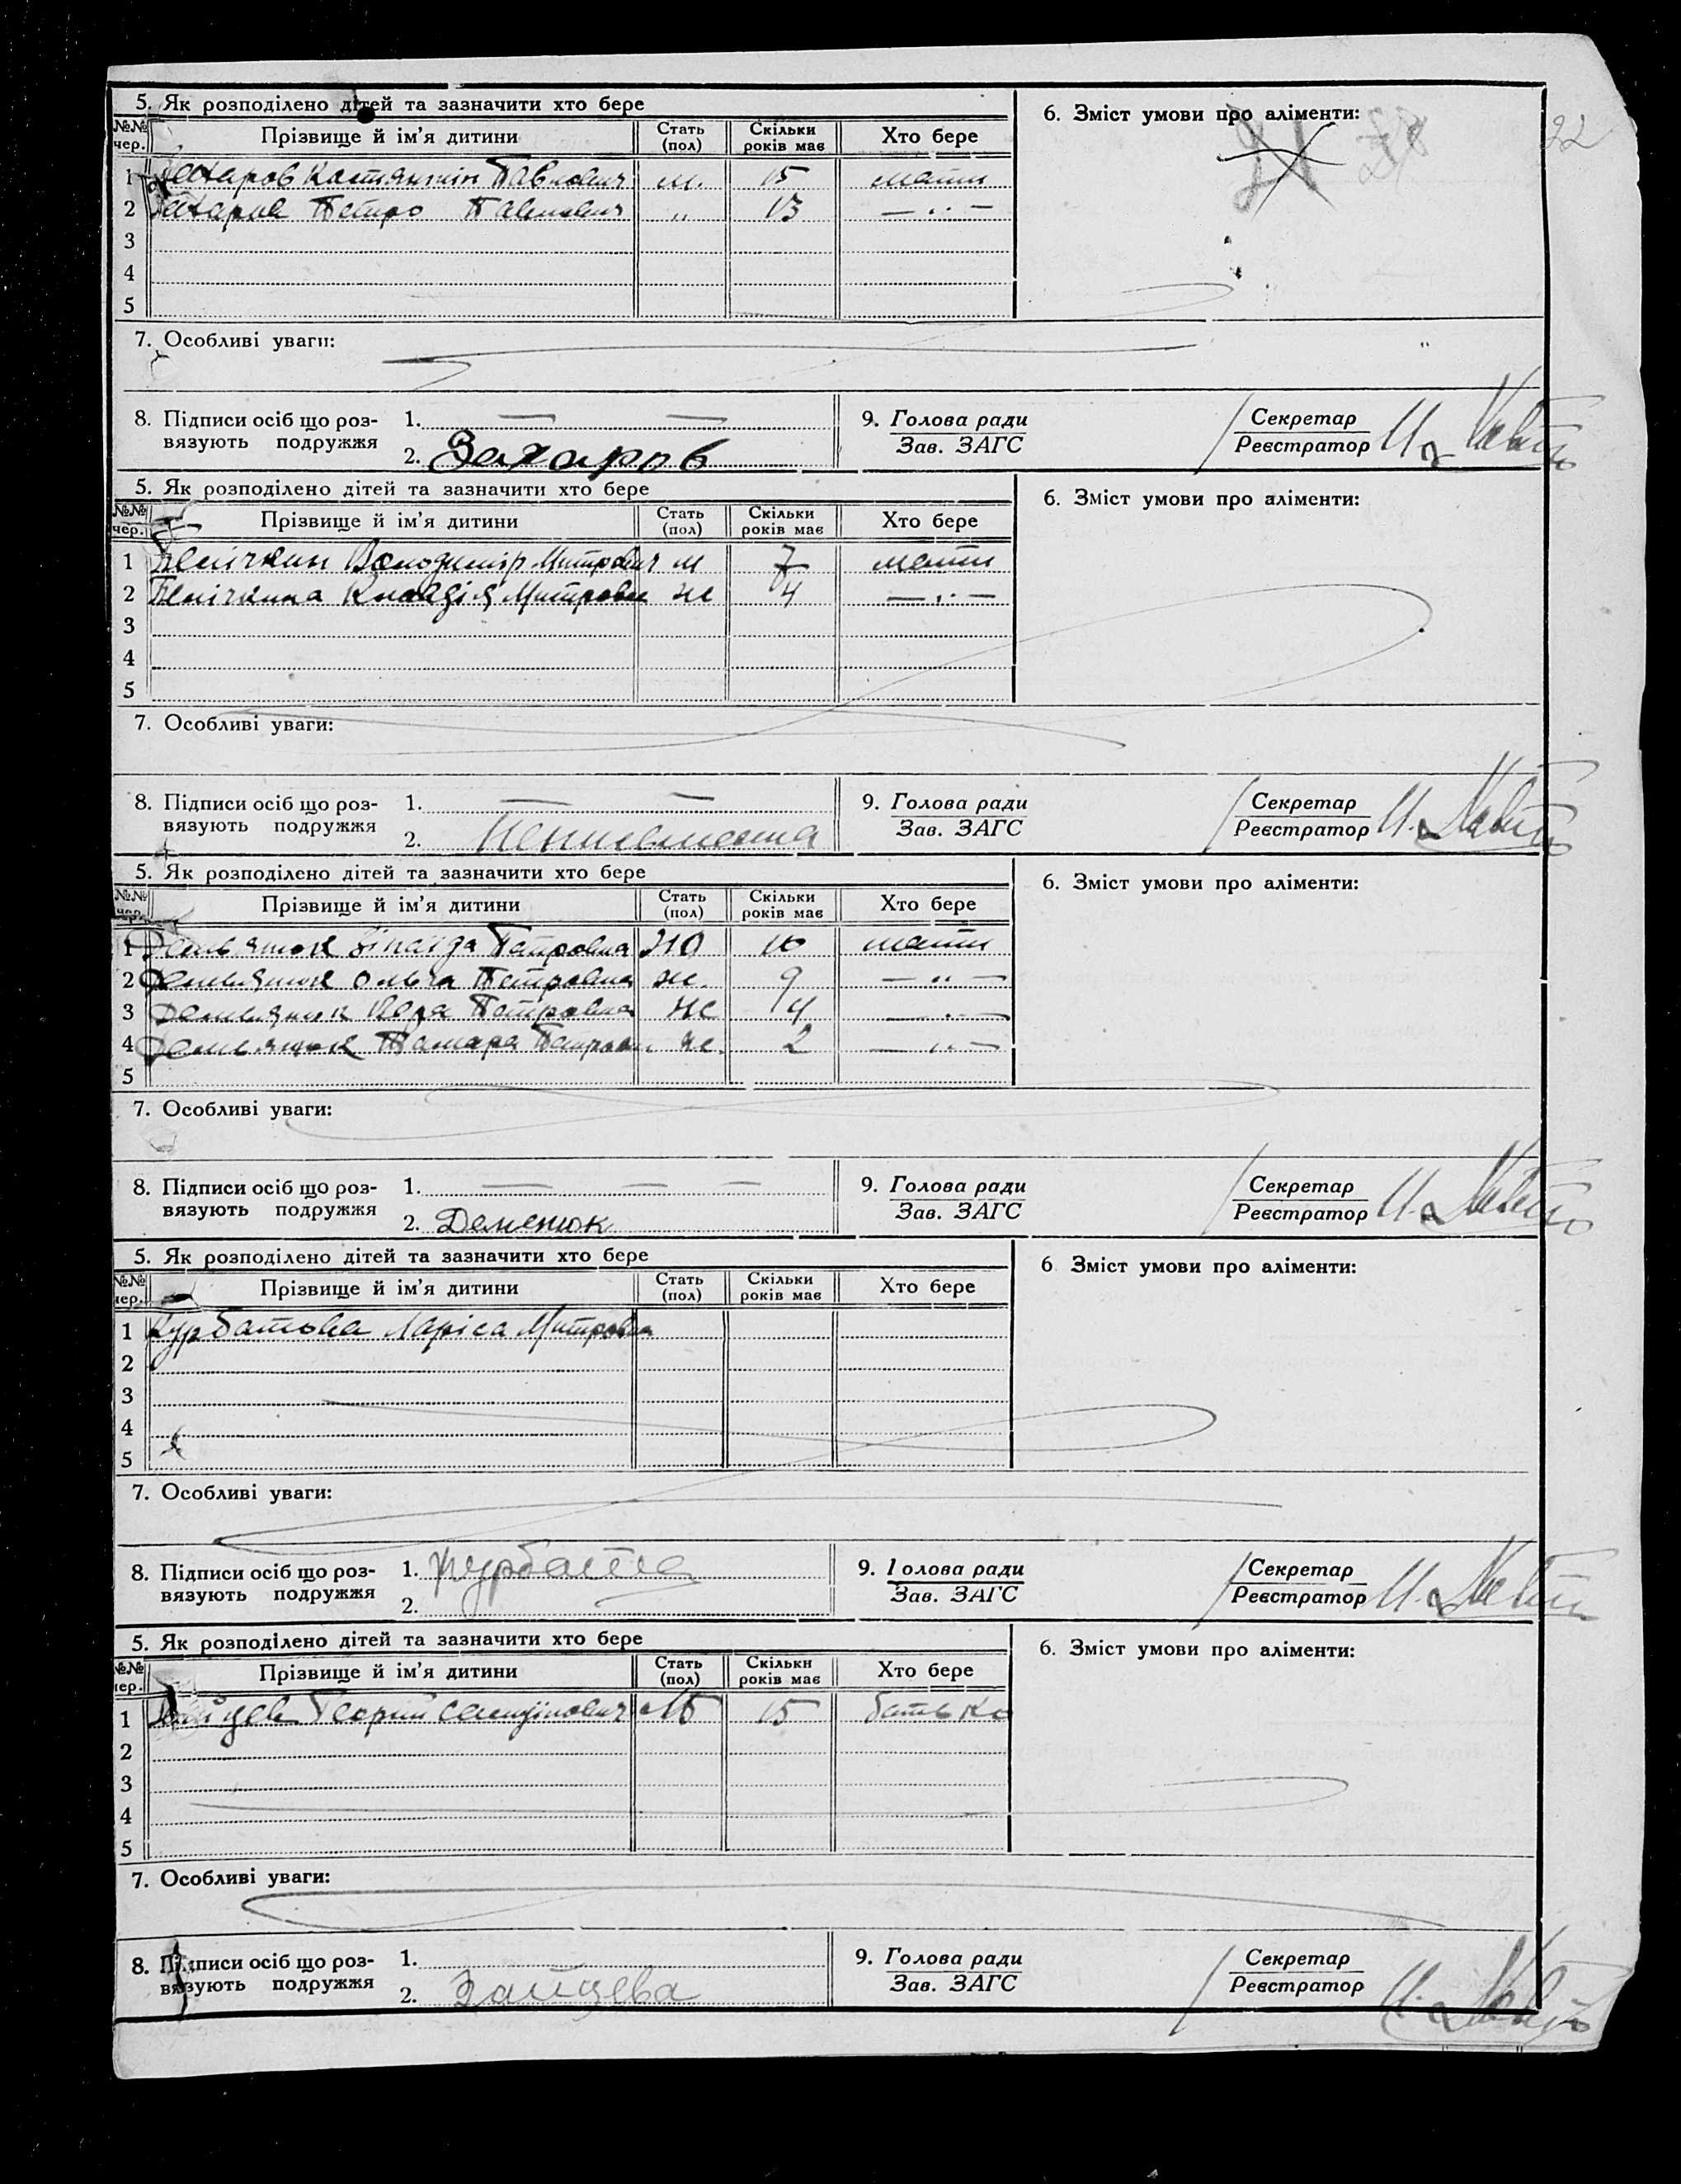 22
5. Як розподілено дітей та зазначити хто бере
6. Зміст умови про аліменти:
№№ чер. Прізвище й ім'я дитини Стать (пол) Скільки років має Хто бере
1 Захаров Костянтін Павлович м. 15 мати
2 Захаров Петро Павлович „ 13 — „ —
3
4
5
7. Особливі уваги:
8. Підписи осіб що роз- 1. — — 9. Голова ради Секретар
вязують подружжя 2. Захаров Зав. ЗАГС Реєстратор
5. Як розподілено дітей та зазначити хто бере
6. Зміст умови про аліменти:
№№ чер. Прізвище й ім'я дитини Стать (пол) Скільки років має Хто бере
1 Володимір Митрович м 7 мати
2 Клавдія Митровна ж 4 — „ —
3
4
5
7. Особливі уваги:
8. Підписи осіб що роз- 1. — — 9. Голова ради Секретар
вязують подружжя 2. Зав. ЗАГС Реєстратор
5. Як розподілено дітей та зазначити хто бере
6. Зміст умови про аліменти:
№№ чер. Прізвище й ім'я дитини Стать (пол) Скільки років має Хто бере
1 Зінаїда Петровна 10 мати
2 Ольга Петровна ж. 9 — „ —
3 Петровна ж 4 — „ —
4 Тамара Петровн ж. 2 — „ —
5
7. Особливі уваги:
8. Підписи осіб що роз- 1. — — — 9. Голова ради Секретар
вязують подружжя 2. Деменюк Зав. ЗАГС Реєстратор
5. Як розподілено дітей та зазначити хто бере
6 Зміст умови про аліменти:
№№ чер. Прізвище й ім'я дитини Стать (пол) Скільки років має Хто бере
1 Курбатова Ларіса Митровна
2
3
4
5
7. Особливі уваги:
8. Підписи осіб що роз- 1. 9. Голова ради Секретар
вязують подружжя 2. Зав. ЗАГС Реєстратор
5. Як розподілено дітей та зазначити хто бере
6. Зміст умови про аліменти:
№№ чер. Прізвище й ім'я дитини Стать (пол) Скільки років має Хто бере
1 Зайцев Георгій 15 батько
2
3
4
5
7. Особливі уваги:
8. Підписи осіб що роз- 1. 9. Голова ради Секретар
вязують подружжя 2. Зайцева Зав. ЗАГС Реєстратор